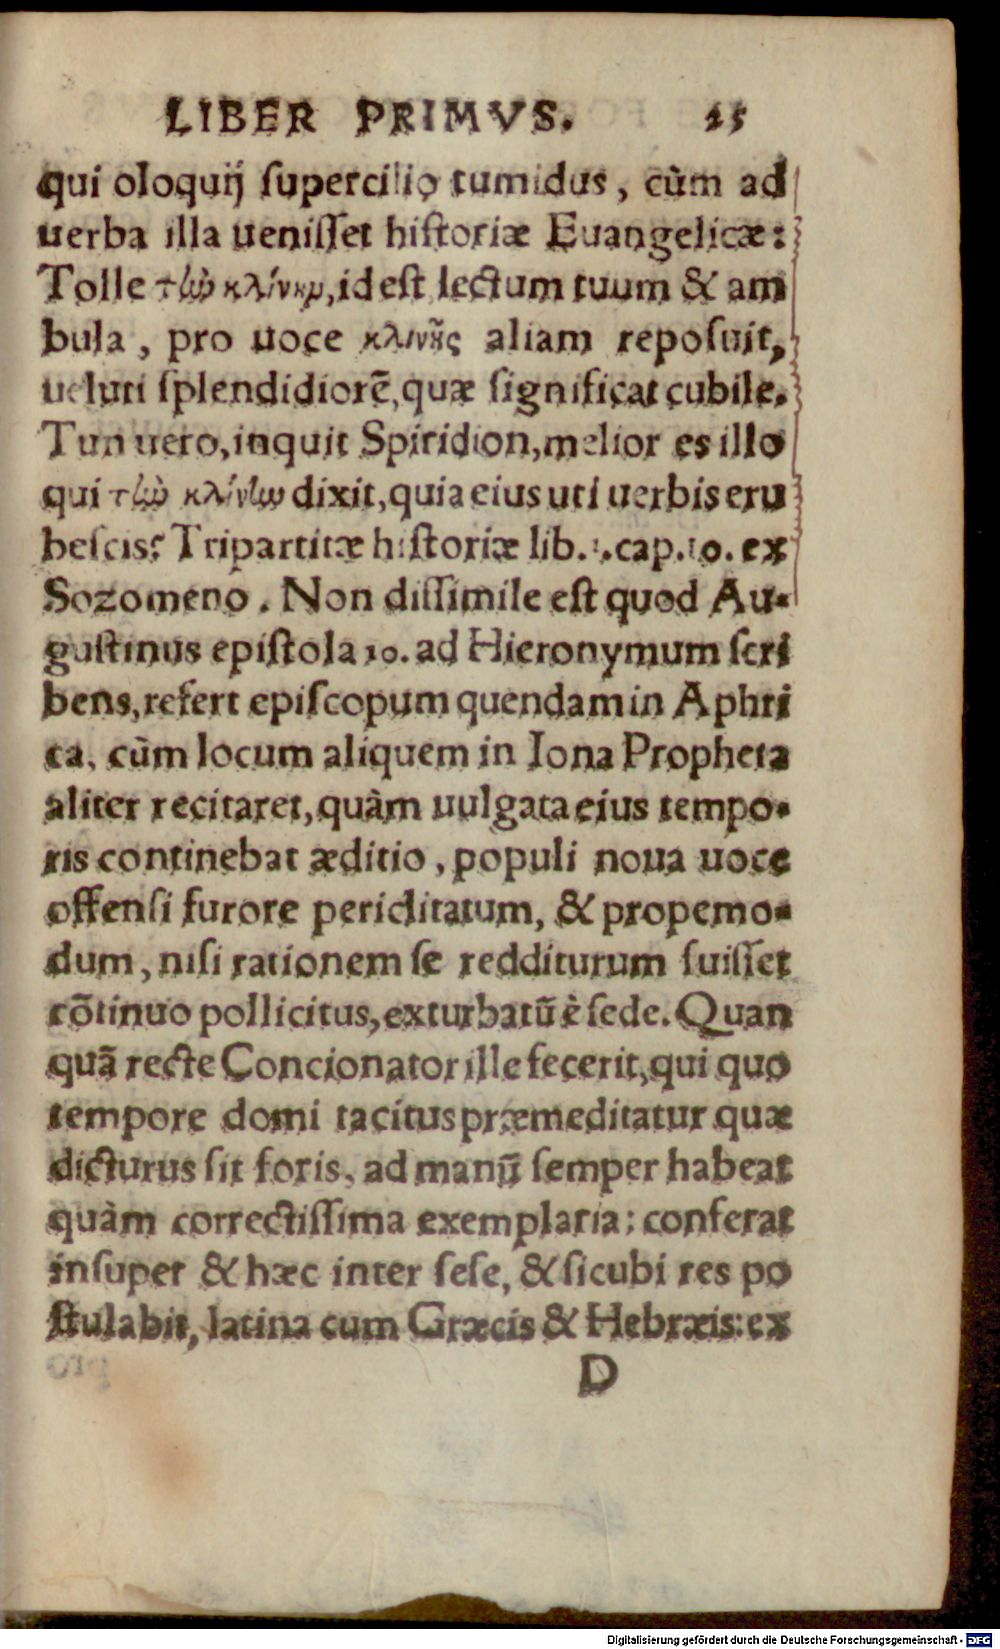 LIBER PRIMVS. 25
qui oloquij supercilio tumidus, cùm ad
uerba illa uenisset historiæ Euangelicæ:
Tolle τὼ κλίνην, id est lectum tuum & am
bula, pro uoce κλινῆς aliam reposuit,
ueluti splendidiorē, quæ significat cubile.
Tun uero, inquit Spiridion, melior es illo
qui τὼ κλίνἰω dixit, quia eius uti uerbis eru
bescis? Tripartitæ historiæ lib. 1. cap. 10. ex
Sozomeno. Non dissimile est quod Au-
gustinus epistola 10. ad Hieronymum scri
bens, refert episcopum quendam in Aphri
ca, cùm locum aliquem in Iona Propheta
aliter recitaret, quàm uulgata eius tempo-
ris continebat æditio, populi noua uoce
offensi furore periclitatum, & propemo-
dum, nisi rationem se redditurum fuisset
cōtinuo pollicitus, exturbatū è sede. Quan
quā recte Concionator ille fecerit, qui quo
tempore domi tacitus præmeditatur quæ
dicturus sit foris, ad manū semper habeat
quàm correctissima exemplaria: conferat
insuper & hæc inter sese, & sicubi res po
stulabit, latina cum Græcis & Hebræis: ex
D
Digitalisierung gefördert durch die Deutsche Forschungsgemeinschaft - DFG